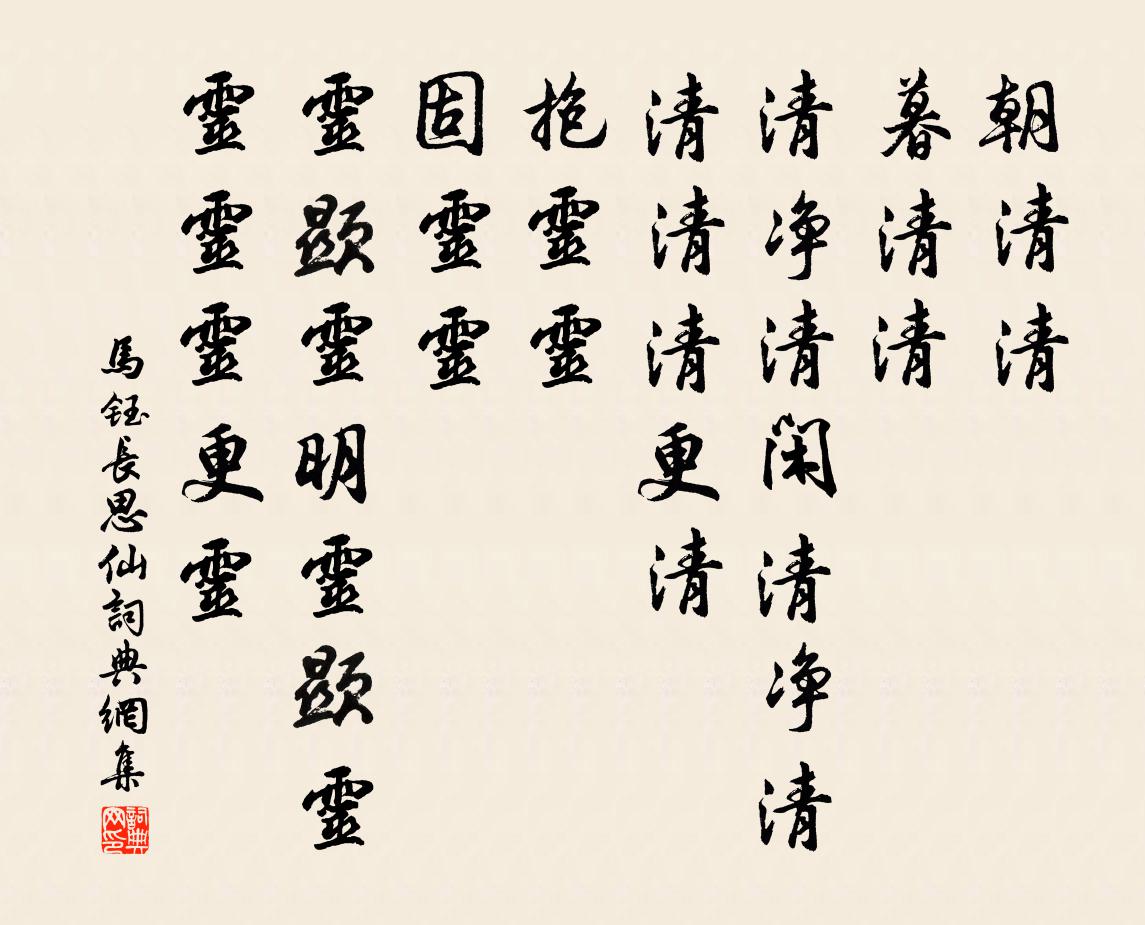 朝清清
暮清清
清净清閑清净清
清清清更清
抱靈靈
固靈靈
靈顯靈明靈顯靈
靈靈靈更靈
馬鈺長思仙詞典網集
詞典網印